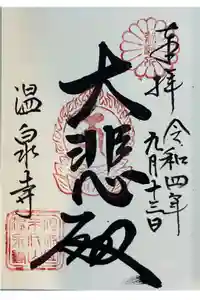 奉拝
令和四年
九月十三日
大悲殿
温泉寺